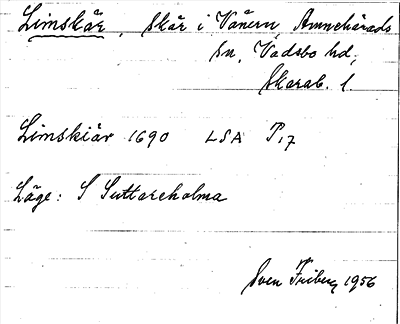 Limskär, skär i Vänern, Amnehärads
sn, Vadsbo hd,
Skarab. l.
Limskiär 1690 LSA P, 7
Läge: S Suttareholma
Sven Friberg 1956